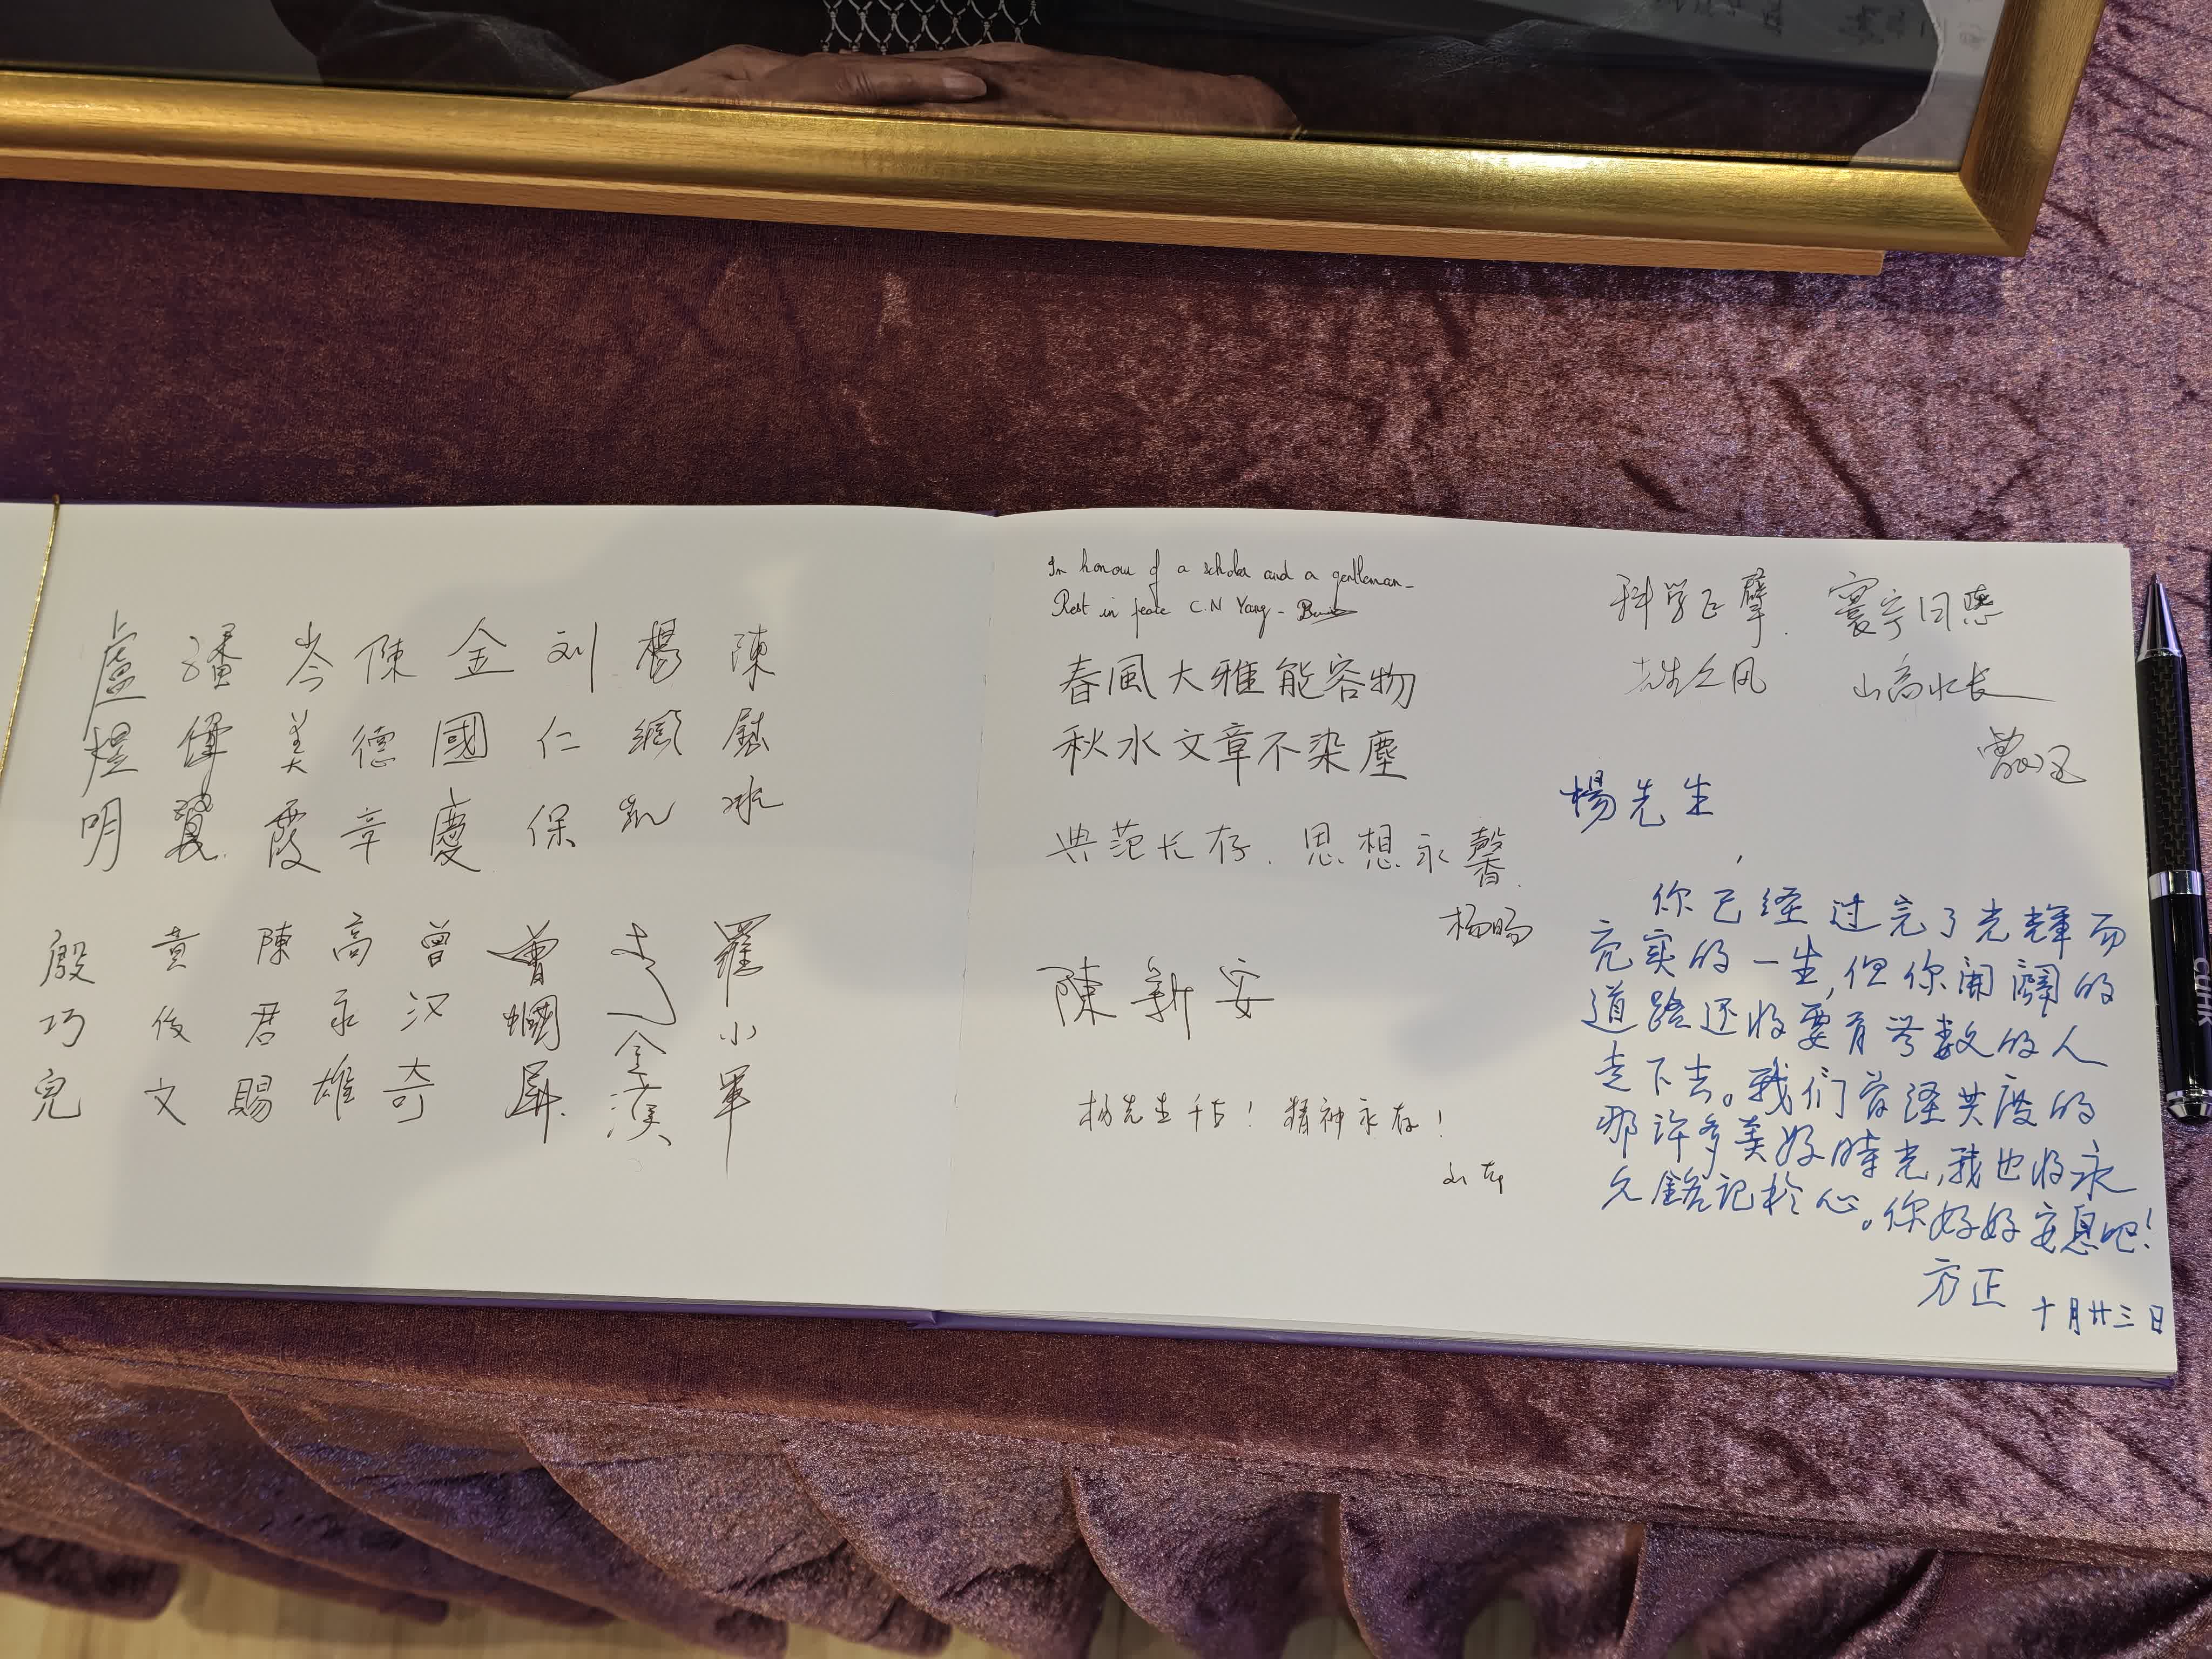 陳
楊
刘仁保
金國慶
陳德章
岑美霞
潘偉賢
盧煜明
羅小軍
李金漢
曾汉奇
高永雄
陳君賜
黄俊文
殷巧兒
In honour of a scholar and a gentleman -
Rest in peace C.N Yang -
春風大雅能容物
秋水文章不染塵
典范长存. 思想永馨.
杨旸
陳新安
杨先生千古! 精神永存!
科学巨擘. 寰宇同悲
先生之风 山高水长
楊先生,
你已经过完了光輝而
充实的一生,但你開闢的
道路还将要有无数的人
走下去。我们曾经共度的
那许多美好時光,我也将永
久銘記於心。你好好安息吧!
方正
十月廿三日
CUHK